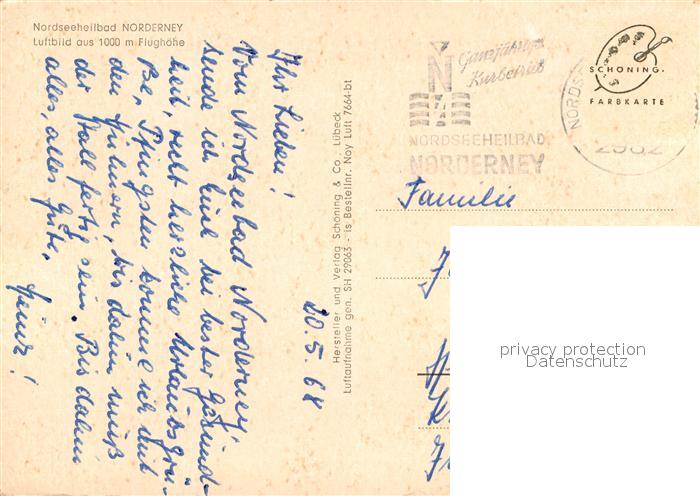 Nordseeheilbad NORDERNEY
Luftbild aus 1000 m Flughöhe
20.5.68
Ihr Lieben!
Vom Nordseebad Norderney
sende ich Euch bei bester Gesund-
heit, recht herzliche Urlaubsgrü-
ße, Pfingsten komme ich mit
den Hühnern, bis dahin muß
der Stall fertig sein. Bis dahin
alles, alles Gute.
Heinz!
Hersteller und Verlag Schöning & Co., Lübeck
Luftaufnahme gen. SH 29063 - is Bestellnr. Noy Luft 7664-bt
Ganzjähriger
Kurbetrieb
N
NORDSEEHEILBAD
NORDERNEY
SCHÖNING
FARBKARTE
2982
Familie
privacy protection
Datenschutz